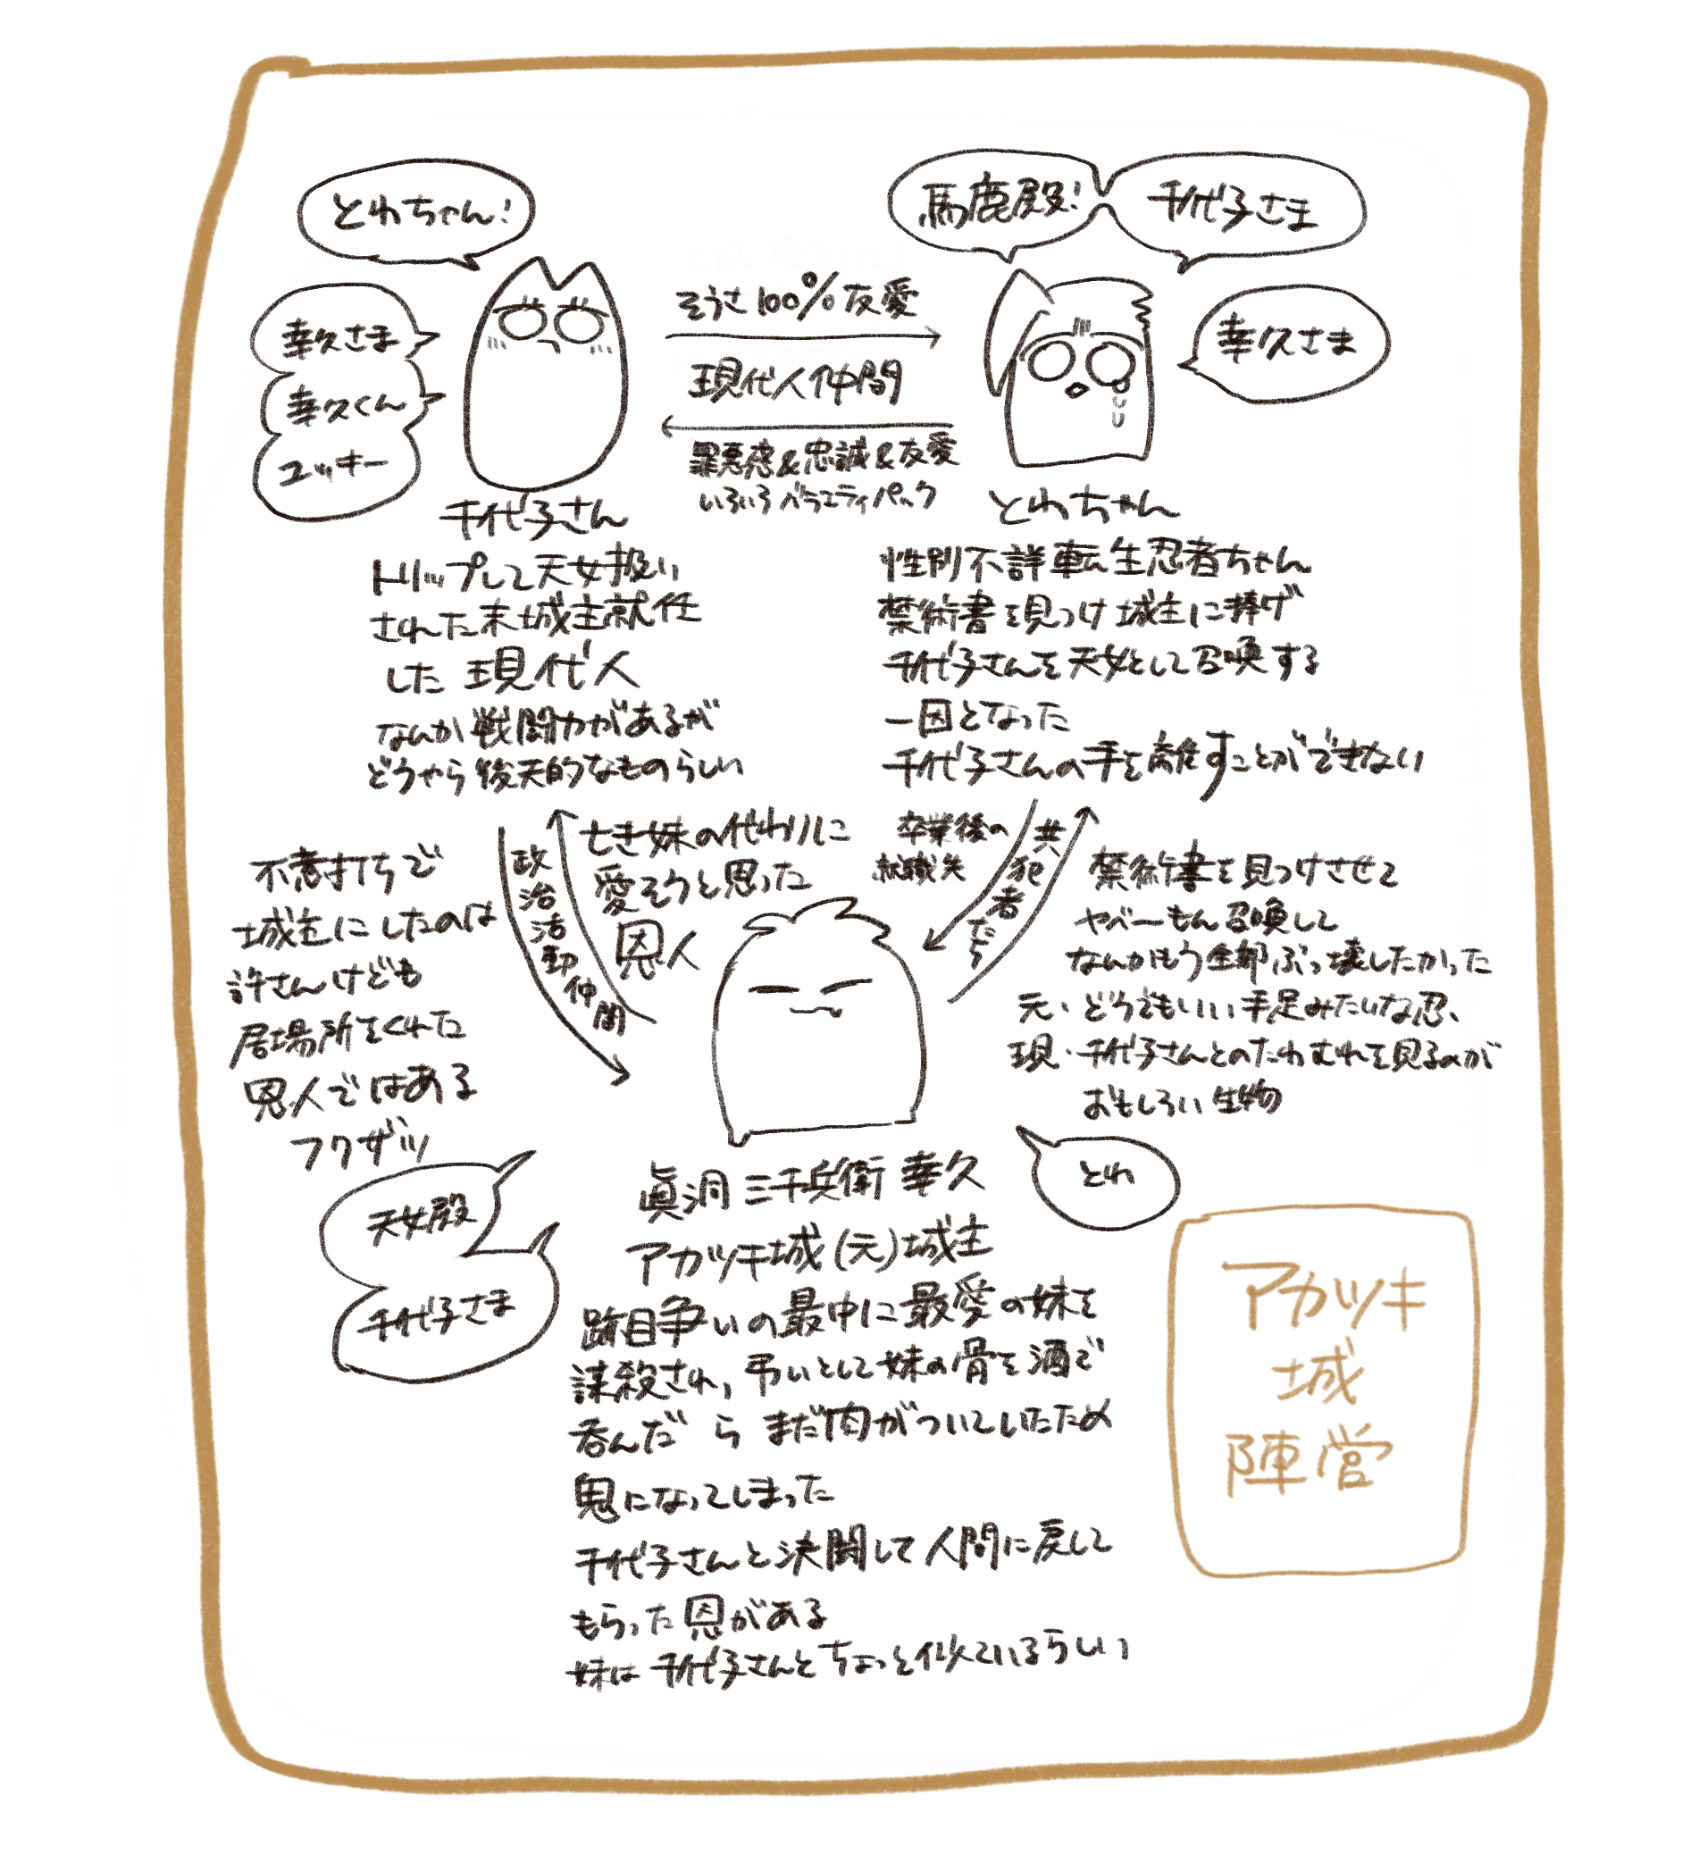 とわちゃん!
幸久さま
幸久くん
ユッキー
馬鹿殿!
千代子さま
幸久さま
そうさ100%友愛
現代人仲間
罪悪感&忠誠&友愛
いろいろバラエティパック
千代子さん
トリップして天女扱い
された末城主就任
した現代人
なんか戦闘力があるが
どうやら後天的なものらしい
とわちゃん
性別不詳転生忍者ちゃん
禁術書を見つけ城主に捧げ
千代子さんを天女として召喚する
一因となった
千代子さんの手を離すことができない
不意打ちで
城主にしたのは
許さんけども
居場所をくれた
恩人ではある
フクザツ
政治活動仲間
亡き妹の代わりに
愛そうと思った
恩人
卒業後の
就職先
共犯者だら
禁術書を見つけさせて
ヤバーもん召喚して
なんかもう全部ぶっ壊したかった
元・どうでもいい手足みたいな忍、
現・千代子さんとのたわむれを見るのが
おもしろい生物
天女殿
千代子さま
とわ
眞洞 三千兵衛 幸久
アカツキ城(元)城主
跡目争いの最中に最愛の妹を
謀殺され、弔いとして妹の骨を酒で
呑んだら まだ肉がついていたため
鬼になってしまった
千代子さんと決闘して人間に戻して
もらった恩がある
妹は千代子さんとちょっと似ているらしい
アカツキ
城
陣営